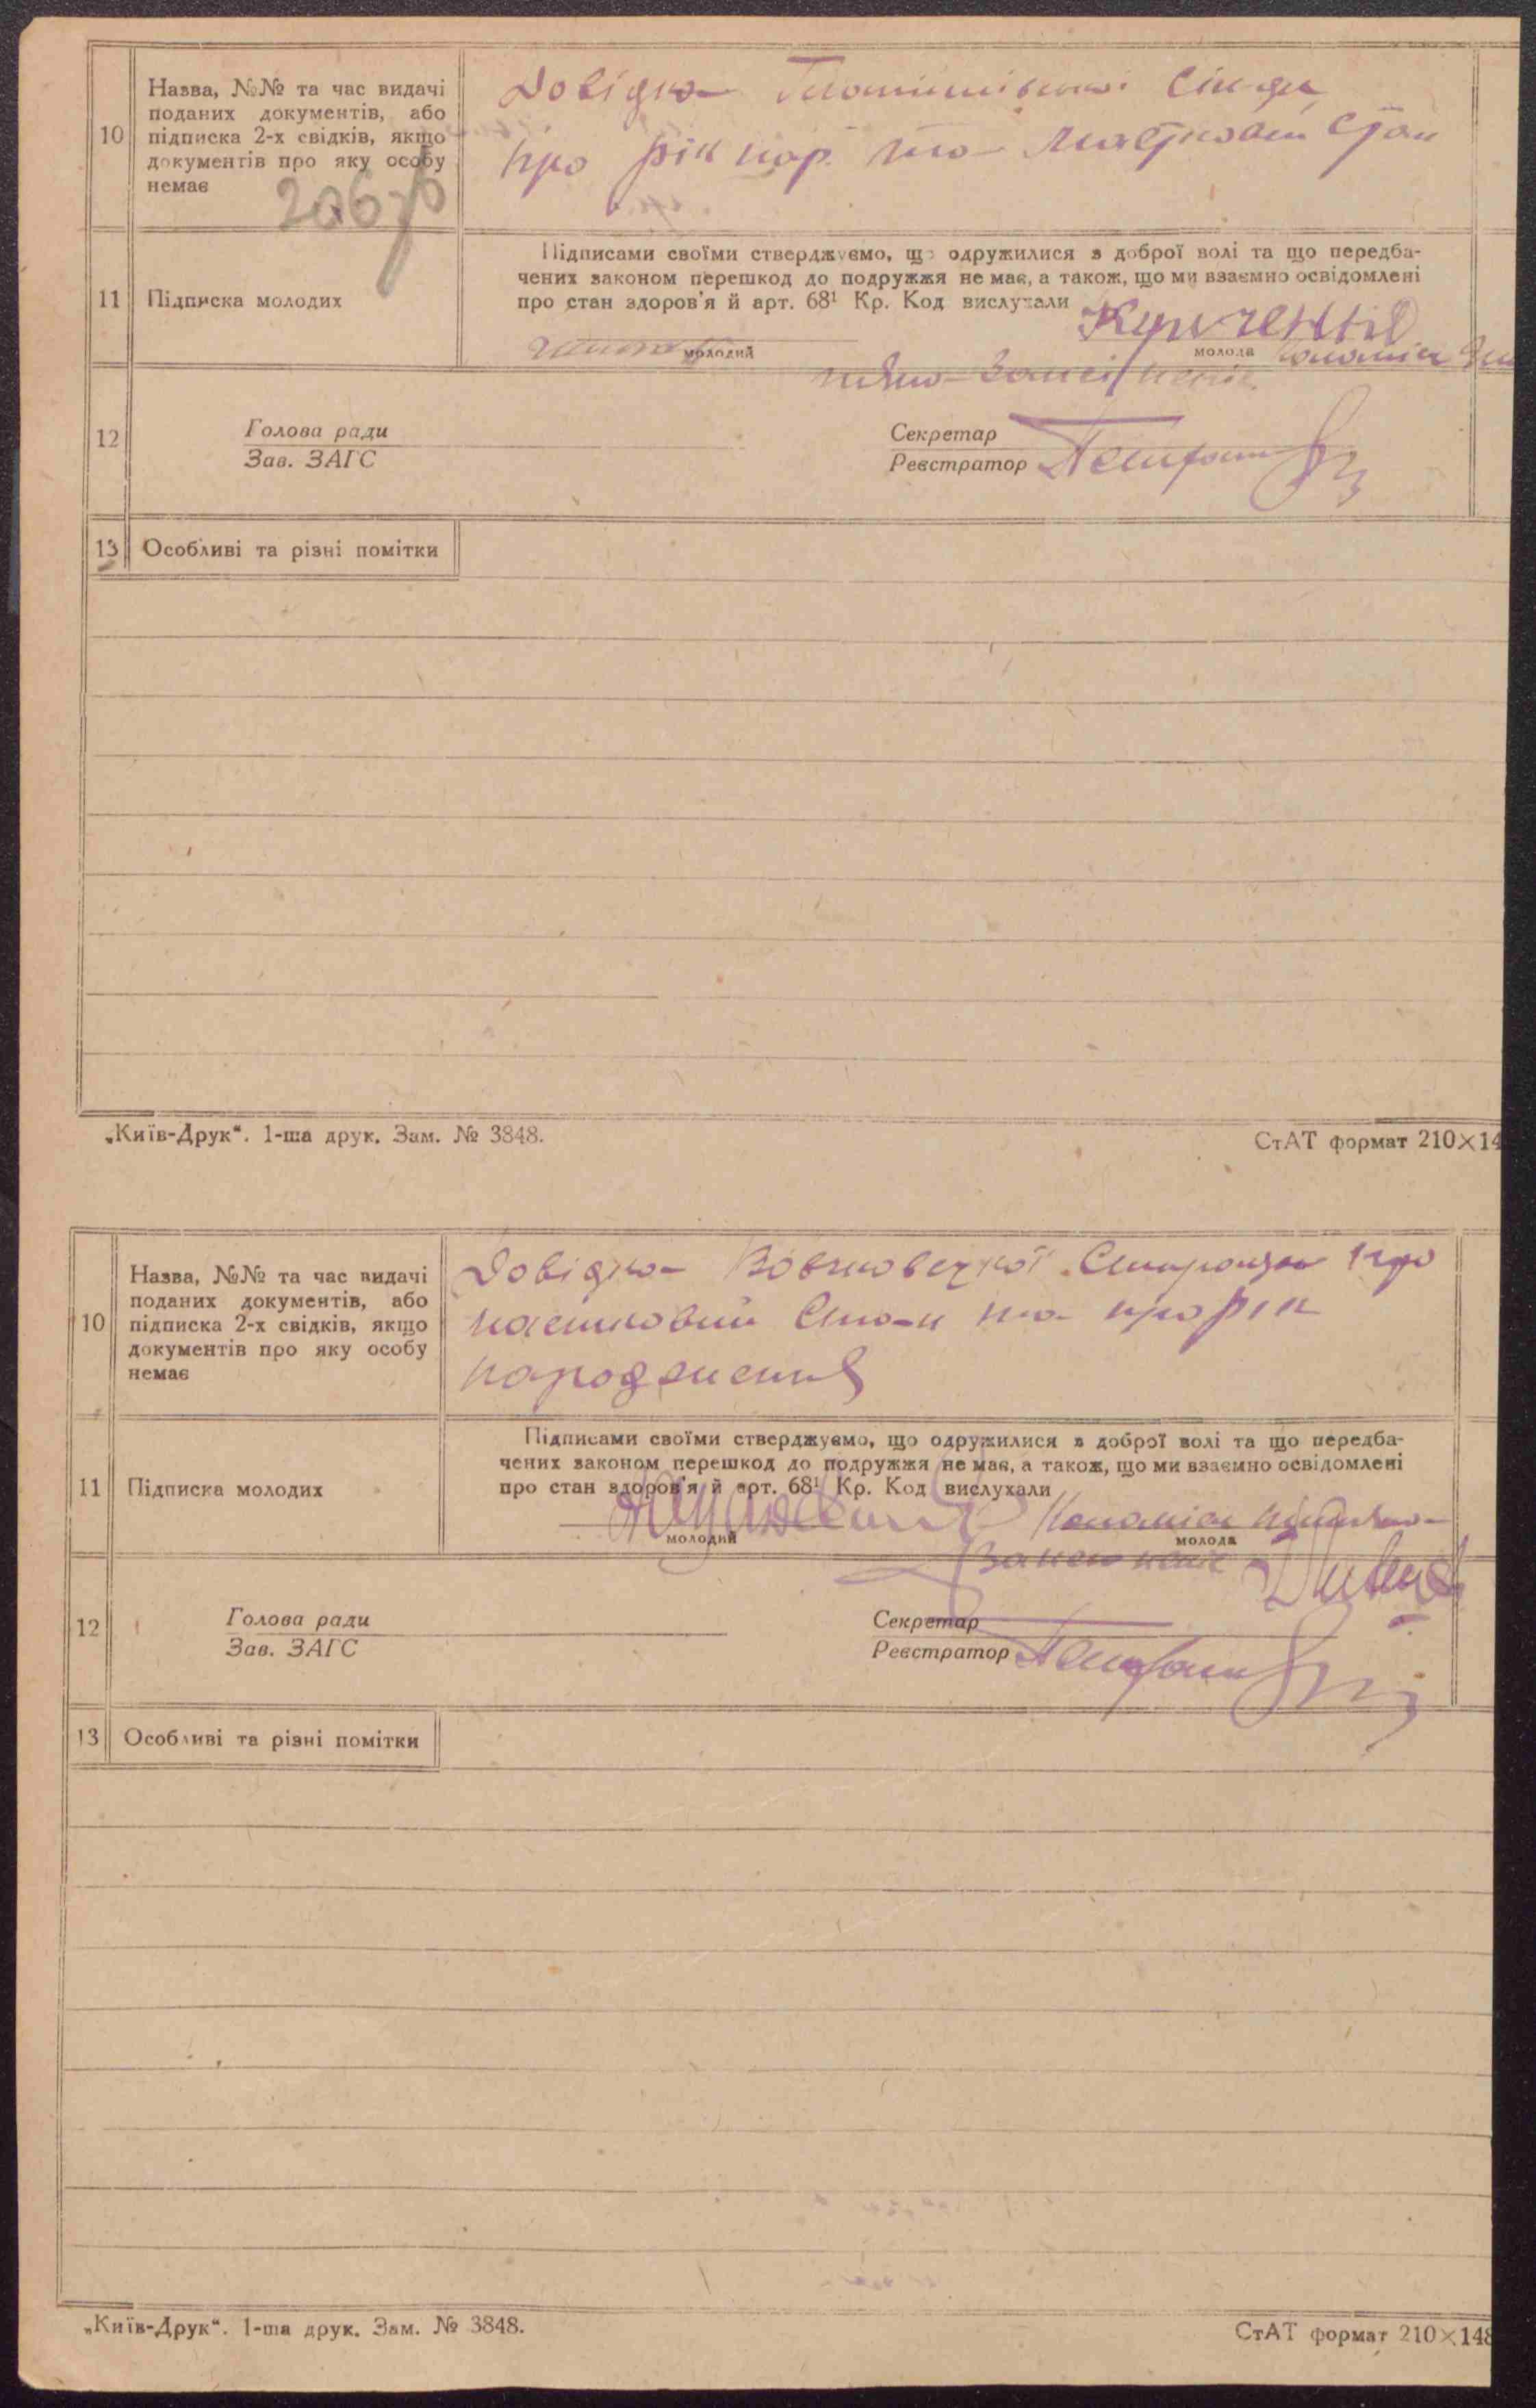 10
Назва, №№ та час видачі
поданих документів, або
підписка 2-х свідків, якщо
документів про яку особу
немає
Довідка
про рік нар. та Маєтковий Стан
11
Підписка молодих
Підписами своїми стверджуємо, що одружилися з доброї волі та що передба-
чених законом перешкод до подружжя не має, а також, що ми взаємно освідомлені
про стан здоров'я й арт. 68¹ Кр. Код вислухали
молодий
молода
12
Голова ради
Зав. ЗАГС
Секретар
Реєстратор
13
Особливі та різні помітки
„Київ-Друк“. 1-ша друк. Зам. № 3848.
СтАТ формат 210×14
10
Назва, №№ та час видачі
поданих документів, або
підписка 2-х свідків, якщо
документів про яку особу
немає
Довідка Вовковецької про
Стан та про рік
народження
11
Підписка молодих
Підписами своїми стверджуємо, що одружилися з доброї волі та що передба-
чених законом перешкод до подружжя не має, а також, що ми взаємно освідомлені
про стан здоров'я й арт. 68¹ Кр. Код вислухали
молодий
молода
12
Голова ради
Зав. ЗАГС
Секретар
Реєстратор
13
Особливі та різні помітки
„Київ-Друк“. 1-ша друк. Зам. № 3848.
СтАТ формат 210×148